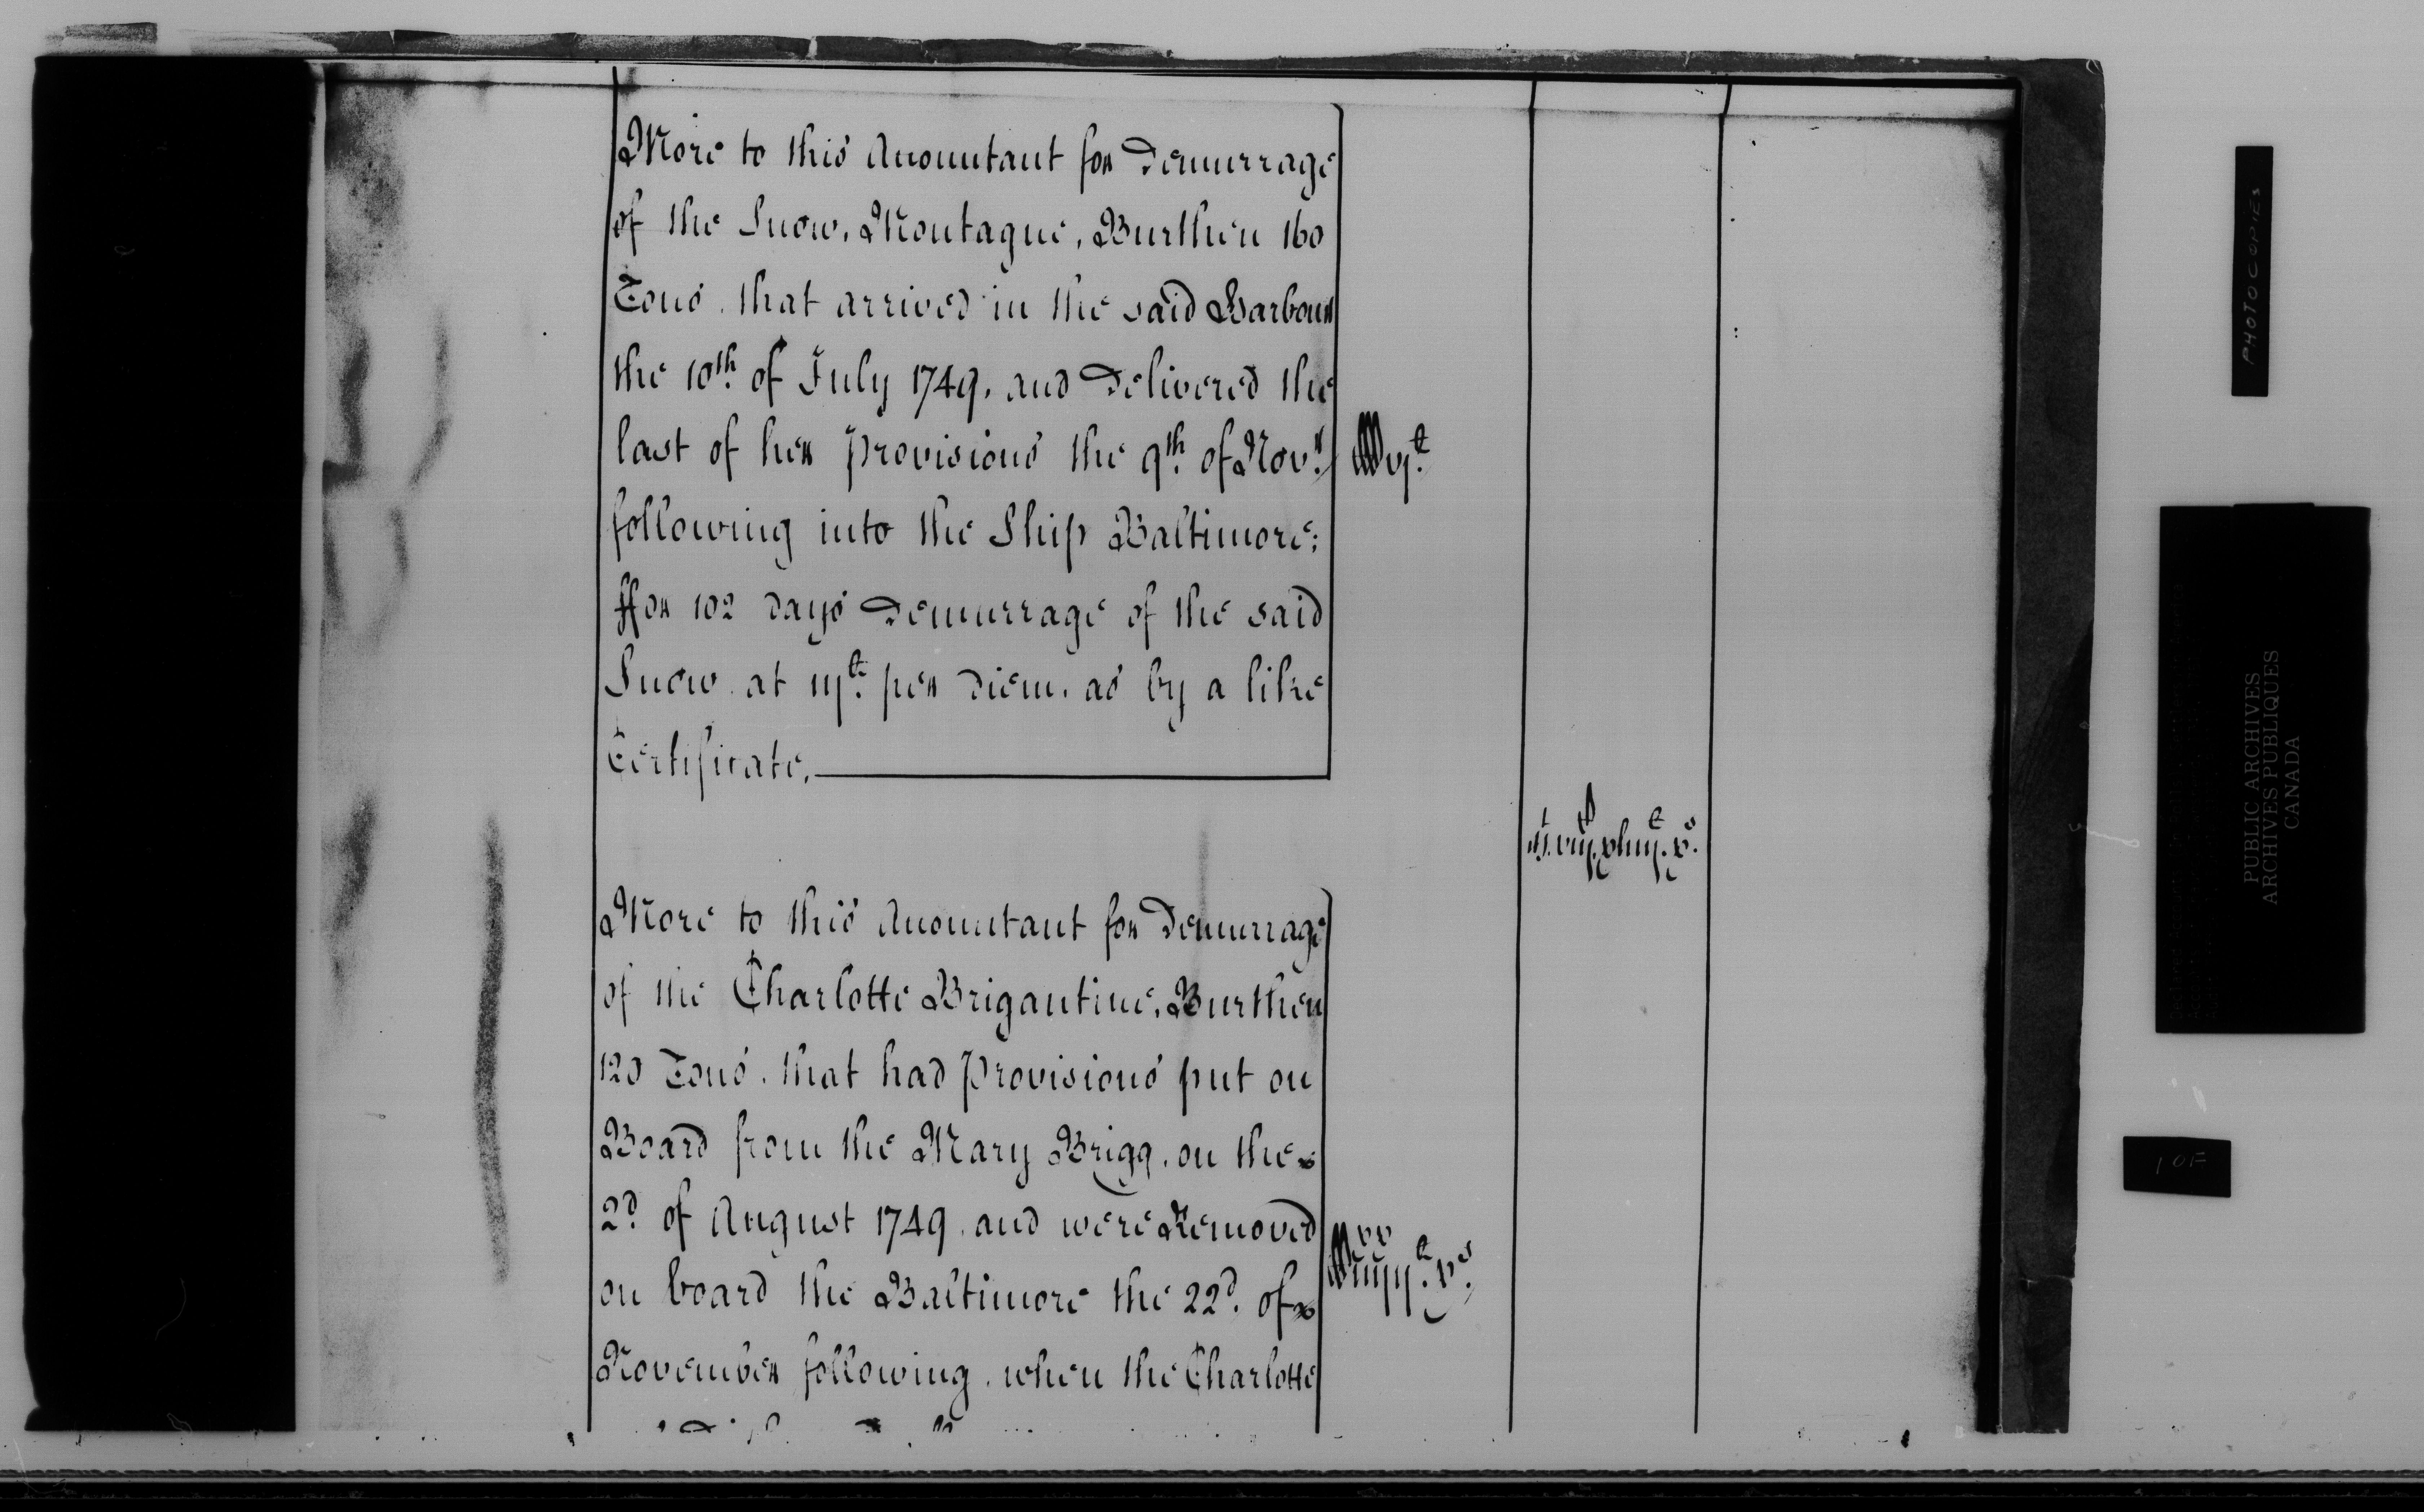 More to this Accountant for Demurrage
of the Snow, Montague, Burthen 160
Tons, that arrived in the said Harbour
the 10th. of July 1749, and Delivered the
last of her Provisions the 9th. of Novr.
following into the Ship Baltimore;
ffor 102 days Demurrage of the said
Snow at iijli. per Diem, as by a like
Certificate,
More to this Accountant for Demurrage
of the Charlotte Brigantine, Burthen
120 Tons, that had Provisions put on
Board from the Mary Brigg, on the
2d. of August 1749, and were Removed
on board the Baltimore the 22d. of
November following, when the Charlotte
PHOTOCOPIES
PUBLIC ARCHIVES
ARCHIVES PUBLIQUES
CANADA